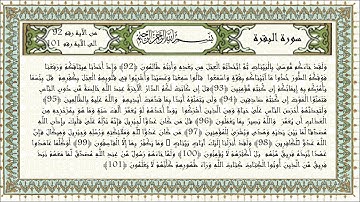 سورة البقرة
بسم الله الرحمن الرحيم
من الآية رقم 92
الى الآية رقم 101
وَلَقَدْ جَاءَكُمْ مُوسَى بِالْبَيِّنَاتِ ثُمَّ اتَّخَذْتُمُ الْعِجْلَ مِنْ بَعْدِهِ وَأَنْتُمْ ظَالِمُونَ (92) وَإِذْ أَخَذْنَا مِيثَاقَكُمْ وَرَفَعْنَا
فَوْقَكُمُ الطُّورَ خُذُوا مَا آتَيْنَاكُمْ بِقُوَّةٍ وَاسْمَعُوا قَالُوا سَمِعْنَا وَعَصَيْنَا وَأُشْرِبُوا فِي قُلُوبِهِمُ الْعِجْلَ بِكُفْرِهِمْ قُلْ بِئْسَمَا
يَأْمُرُكُمْ بِهِ إِيمَانُكُمْ إِنْ كُنْتُمْ مُؤْمِنِينَ (93) قُلْ إِنْ كَانَتْ لَكُمُ الدَّارُ الْآخِرَةُ عِنْدَ اللَّهِ خَالِصَةً مِنْ دُونِ النَّاسِ
فَتَمَنَّوُا الْمَوْتَ إِنْ كُنْتُمْ صَادِقِينَ (94) وَلَنْ يَتَمَنَّوْهُ أَبَدًا بِمَا قَدَّمَتْ أَيْدِيهِمْ وَاللَّهُ عَلِيمٌ بِالظَّالِمِينَ (95)
وَلَتَجِدَنَّهُمْ أَحْرَصَ النَّاسِ عَلَى حَيَاةٍ وَمِنَ الَّذِينَ أَشْرَكُوا يَوَدُّ أَحَدُهُمْ لَوْ يُعَمَّرُ أَلْفَ سَنَةٍ وَمَا هُوَ بِمُزَحْزِحِهِ مِنَ
الْعَذَابِ أَنْ يُعَمَّرَ وَاللَّهُ بَصِيرٌ بِمَا يَعْمَلُونَ (96) قُلْ مَنْ كَانَ عَدُوًّا لِجِبْرِيلَ فَإِنَّهُ نَزَّلَهُ عَلَى قَلْبِكَ بِإِذْنِ اللَّهِ
مُصَدِّقًا لِمَا بَيْنَ يَدَيْهِ وَهُدًى وَبُشْرَى لِلْمُؤْمِنِينَ (97) مَنْ كَانَ عَدُوًّا لِلَّهِ وَمَلَائِكَتِهِ وَرُسُلِهِ وَجِبْرِيلَ وَمِيكَالَ فَإِنَّ
اللَّهَ عَدُوٌّ لِلْكَافِرِينَ (98) وَلَقَدْ أَنْزَلْنَا إِلَيْكَ آيَاتٍ بَيِّنَاتٍ وَمَا يَكْفُرُ بِهَا إِلَّا الْفَاسِقُونَ (99) أَوَكُلَّمَا عَاهَدُوا
عَهْدًا نَبَذَهُ فَرِيقٌ مِنْهُمْ بَلْ أَكْثَرُهُمْ لَا يُؤْمِنُونَ (100) وَلَمَّا جَاءَهُمْ رَسُولٌ مِنْ عِنْدِ اللَّهِ مُصَدِّقٌ لِمَا مَعَهُمْ نَبَذَ
فَرِيقٌ مِنَ الَّذِينَ أُوتُوا الْكِتَابَ كِتَابَ اللَّهِ وَرَاءَ ظُهُورِهِمْ كَأَنَّهُمْ لَا يَعْلَمُونَ (101)